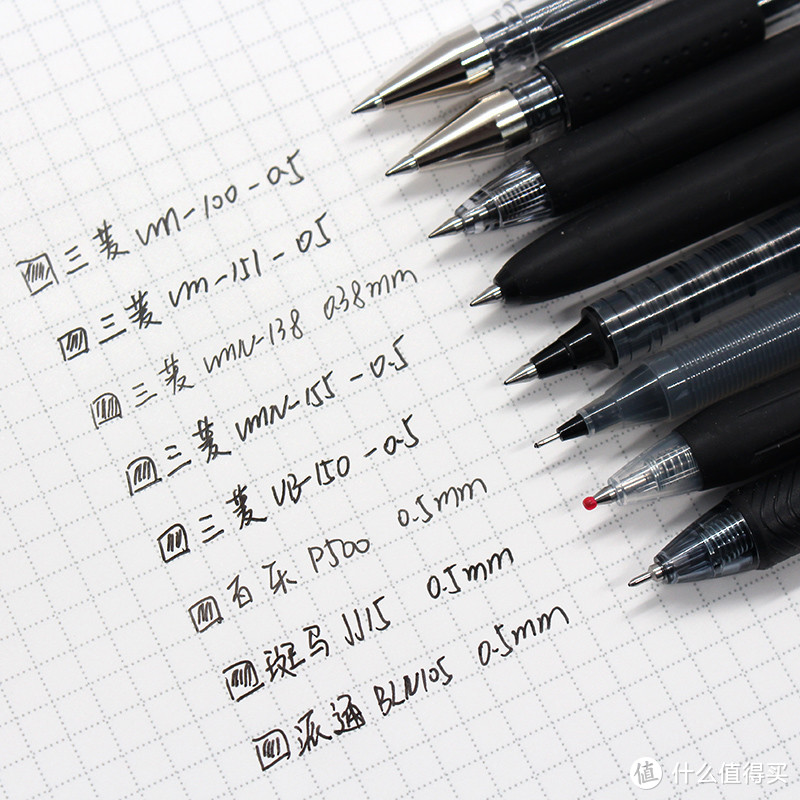 三菱 um-100-0.5
三菱 um-151-05
三菱 umN-138 038mm
三菱 umN-155-0.5
三菱 UB-150-0.5
百乐 P500 0.5mm
斑马 JJ15 0.5mm
派通 BLN105 0.5mm
值 什么值得买